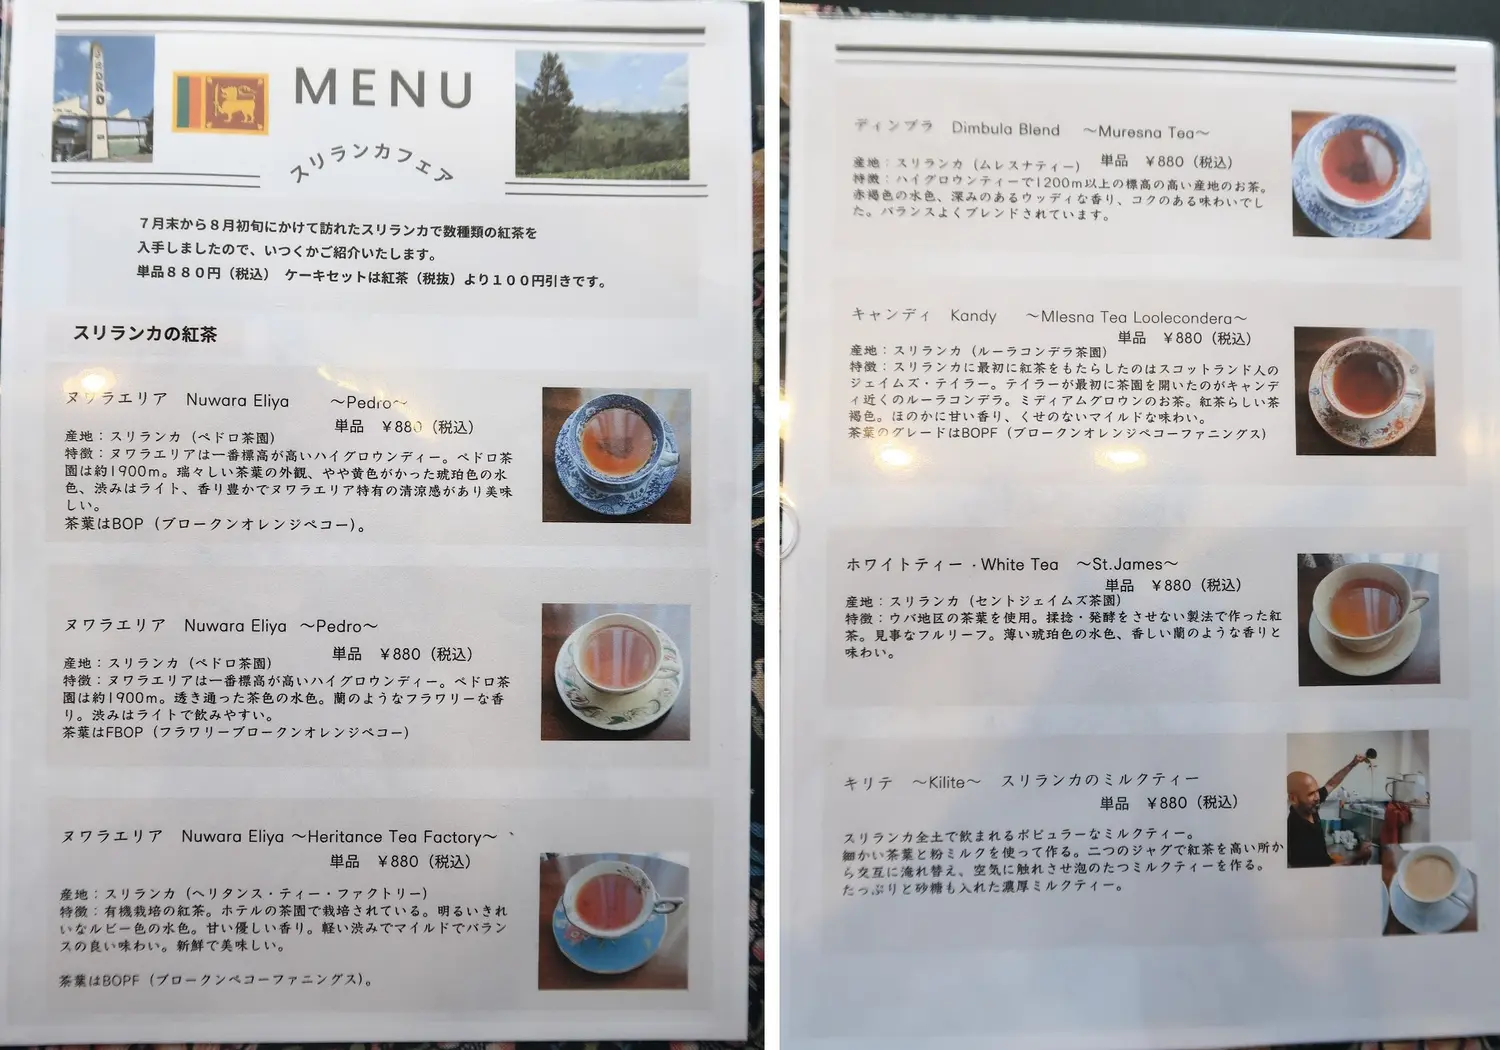 PEDRO
MENU
スリランカフェア
７月末から８月初旬にかけて訪れたスリランカで数種類の紅茶を
入手しましたので、いつくかご紹介いたします。
単品８８０円（税込）　ケーキセットは紅茶（税抜）より１００円引きです。
スリランカの紅茶
ヌワラエリア　Nuwara Eliya　　～Pedro～
単品　￥880（税込）
産地：スリランカ（ペドロ茶園）
特徴：ヌワラエリアは一番標高が高いハイグロウンディー。ペドロ茶
園は約1900m。瑞々しい茶葉の外観、やや黄色がかった琥珀色の水
色、渋みはライト、香り豊かでヌワラエリア特有の清涼感があり美味
しい。
茶葉はBOP（ブロークンオレンジペコー）。
ヌワラエリア　Nuwara Eliya　～Pedro～
単品　￥880（税込）
産地：スリランカ（ペドロ茶園）
特徴：ヌワラエリアは一番標高が高いハイグロウンディー。ペドロ茶
園は約1900m。透き通った茶色の水色。蘭のようなフラワリーな香
り。渋みはライトで飲みやすい。
茶葉はFBOP（フラワリーブロークンオレンジペコー）
ヌワラエリア　Nuwara Eliya ～Heritance Tea Factory～
単品　￥880（税込）
産地：スリランカ（ヘリタンス・ティー・ファクトリー）
特徴：有機栽培の紅茶。ホテルの茶園で栽培されている。明るいきれ
いなルビー色の水色。甘い優しい香り。軽い渋みでマイルドでバラン
スの良い味わい。新鮮で美味しい。
茶葉はBOPF（ブロークンペコーファニングス）。
ディンブラ　Dimbula Blend　　～Muresna Tea～
単品　￥880（税込）
産地：スリランカ（ムレスナティー）
特徴：ハイグロウンティーで1200m以上の標高の高い産地のお茶。
赤褐色の水色、深みのあるウッディな香り、コクのある味わいでし
た。バランスよくブレンドされています。
キャンディ　Kandy　　～Mlesna Tea Loolecondera～
単品　￥880（税込）
産地：スリランカ（ルーラコンデラ茶園）
特徴：スリランカに最初に紅茶をもたらしたのはスコットランド人の
ジェイムズ・テイラー。テイラーが最初に茶園を開いたのがキャンデ
ィ近くのルーラコンデラ。ミディアムグロウンのお茶。紅茶らしい茶
褐色。ほのかに甘い香り、くせのないマイルドな味わい。
茶葉のグレードはBOPF（ブロークンオレンジペコーファニングス）
ホワイトティー・White Tea　～St.James～
単品　￥880（税込）
産地：スリランカ（セントジェイムズ茶園）
特徴：ウバ地区の茶葉を使用。揉捻・発酵をさせない製法で作った紅
茶。見事なフルリーフ。薄い琥珀色の水色、香しい蘭のような香りと
味わい。
キリテ　～Kilite～　スリランカのミルクティー
単品　￥880（税込）
スリランカ全土で飲まれるポピュラーなミルクティー。
細かい茶葉と粉ミルクを使って作る。二つのジャグで紅茶を高い所か
ら交互に淹れ替え、空気に触れさせ泡のたつミルクティーを作る。
たっぷりと砂糖も入れた濃厚ミルクティー。